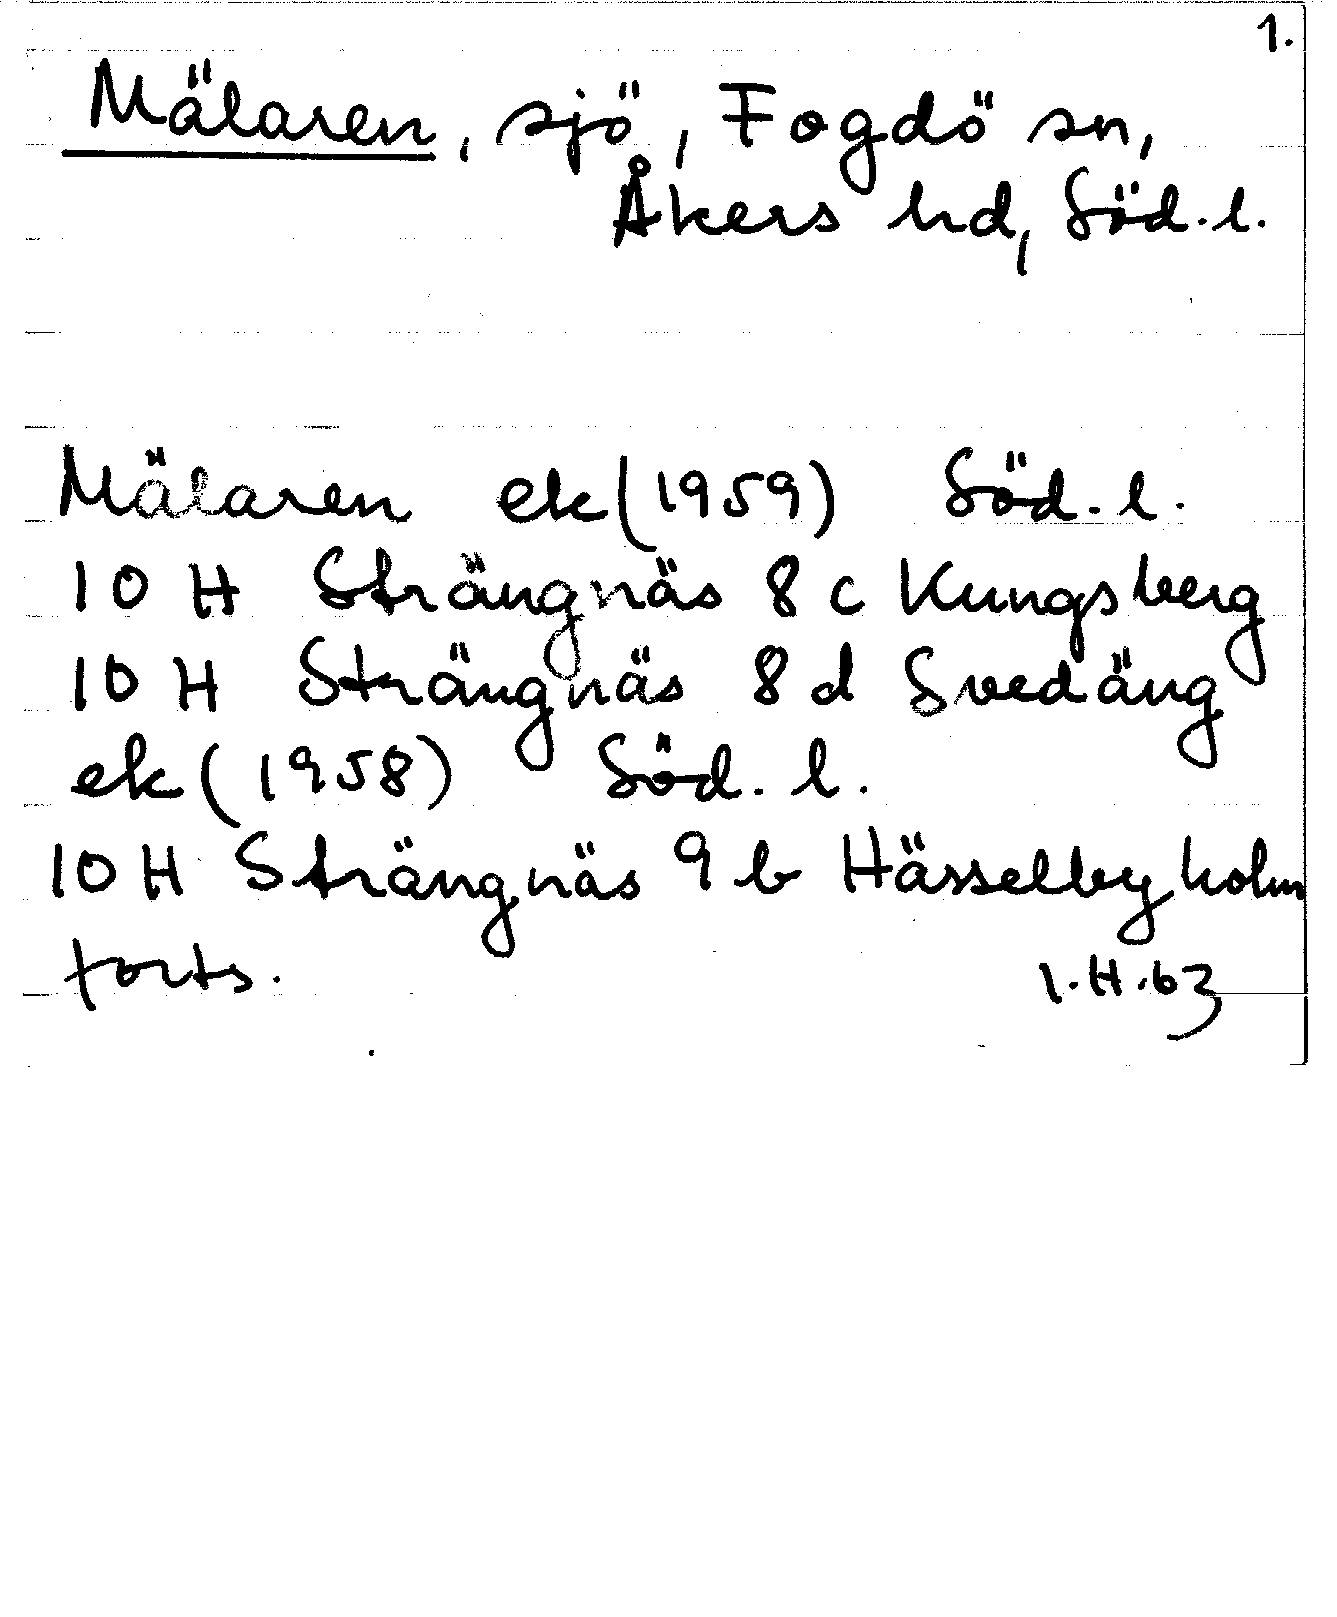 1.
Mälaren, sjö, Fogdö sn,
Åkers hd, Söd.l.
Mälaren ek(1959) Söd.l.
10 H Strängnäs 8 c Kungsberg
10 H Strängnäs 8 d Svedäng
ek(1958) Söd.l.
10 H Strängnäs 9 b Hässelbyholm
forts. I.H.63